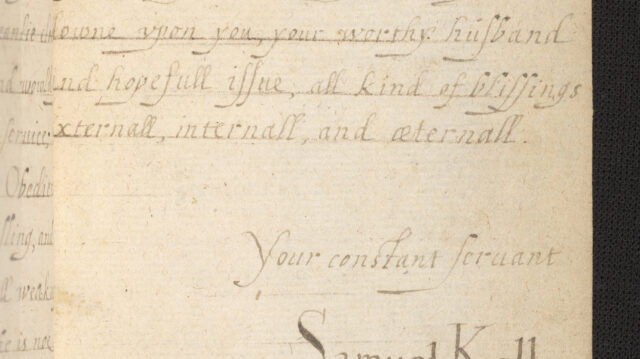 owne vpon you, your worthy husband
nd hopefull issue, all kind of blissings
xternall, internall, and æternall.
Your constant seruant
Samuel
service;
Obedit
lling, and
ll weak
he is not